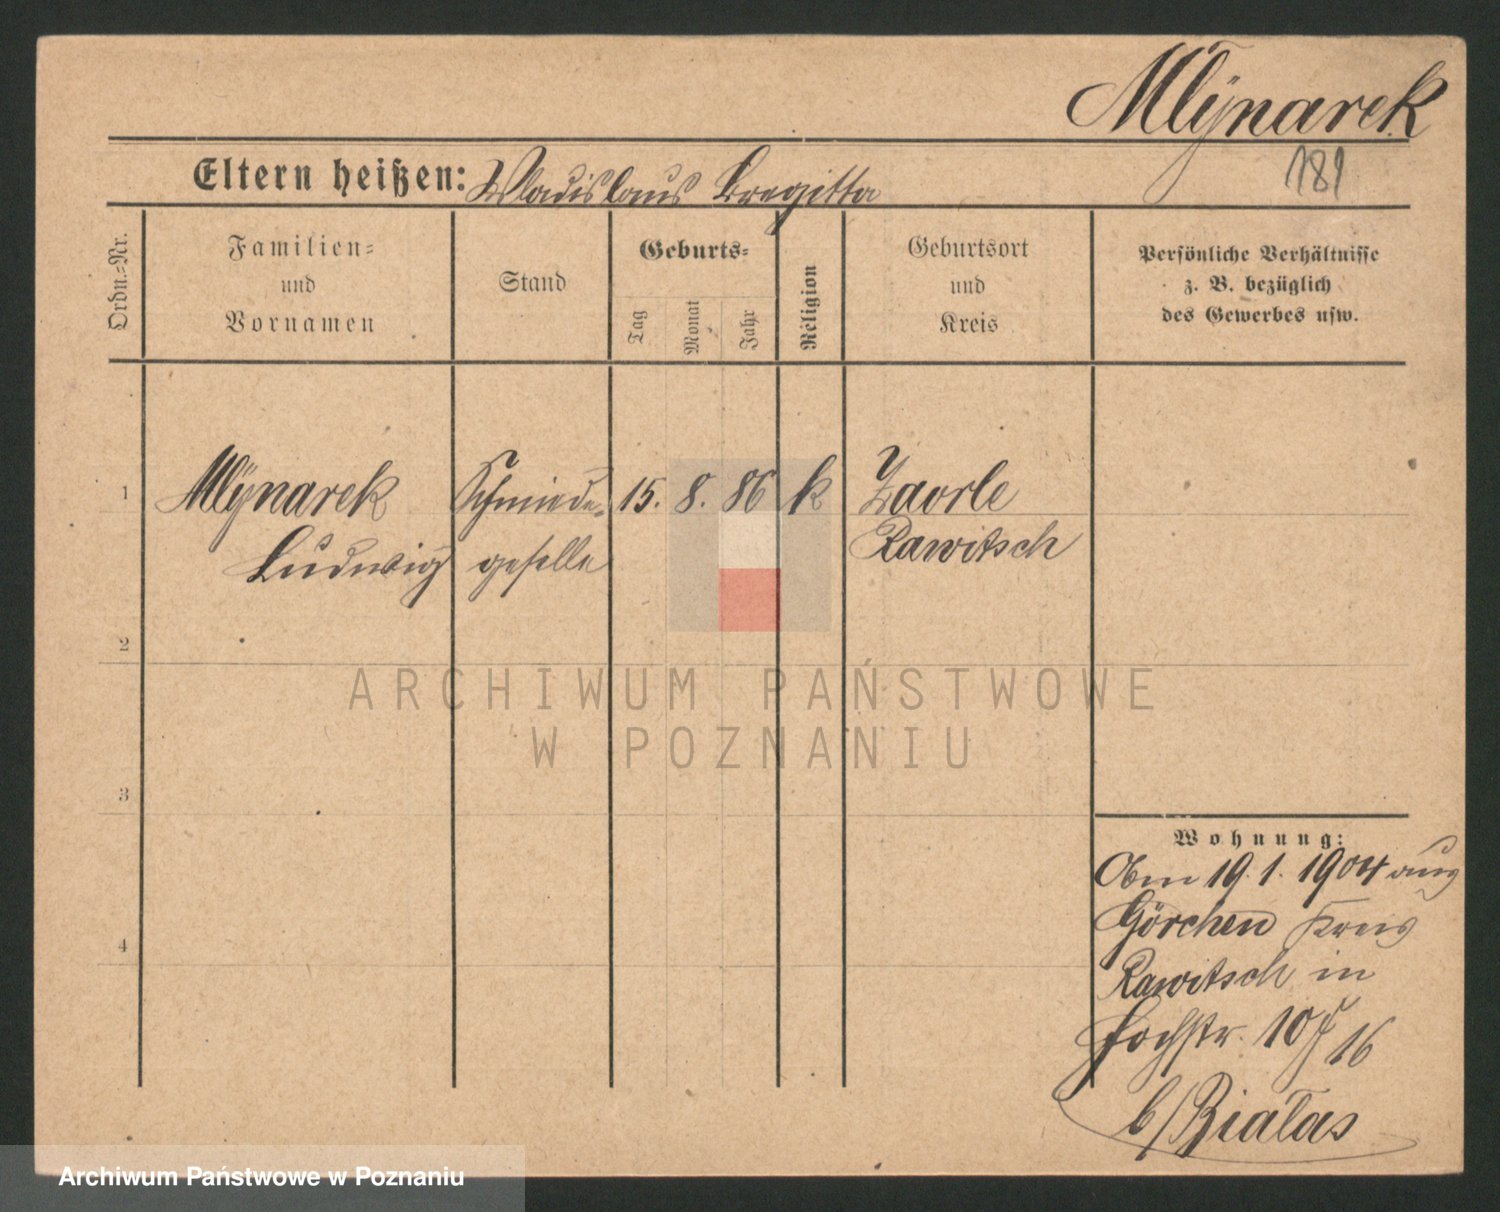 Mlÿnarek
181
Eltern heißen: Wladislaus Bregitta
Ordn.=Nr.
Familien=
und
Vornamen
Stand
Geburts=
Tag
Monat
Jahr
Religion
Geburtsort
und
Kreis
Persönliche Verhältnisse
z. B. bezüglich
des Gewerbes usw.
1 Mlÿnarek Schmiede- 15. 8. 86 k Zaorle
Ludwig geselle Rawitsch
2
3
4
ARCHIWUM PAŃSTWOWE
W POZNANIU
Wohnung:
19.1.1904 aus
Görchen Kreis
Rawitsch in
16
b/Bialas
Archiwum Państwowe w Poznaniu